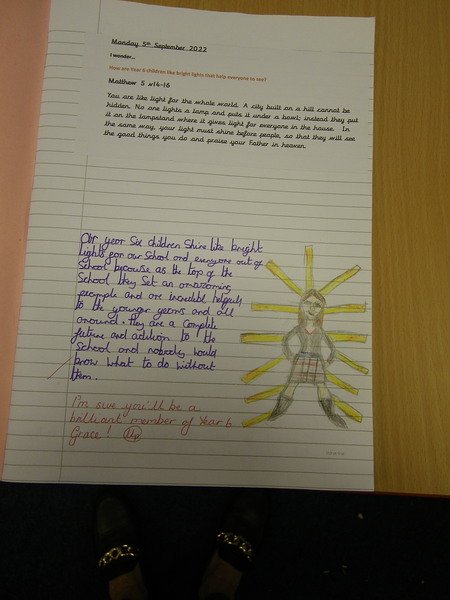 Monday 5th September 2022
I wonder...
How are Year 6 children like bright lights that help everyone to see?
Matthew 5 v14-16
You are like light for the whole world. A city built on a hill cannot be
hidden. No one lights a lamp and puts it under a bowl; instead they put
it on the lampstand where it gives light for everyone in the house. In
the same way, your light must shine before people, so that they will see
the good things you do and praise your Father in heaven.
Our year Six children Shine like bright
lights for our School and everyone out of
School because as the top of the
School they Set an amazing
example and are incredible helpers
to the younger years and all
around. They are a Complete
future and adition to the
School and nobody would
know what to do without
them.
I'm sure you'll be a
brilliant member of Year 6
Grace!